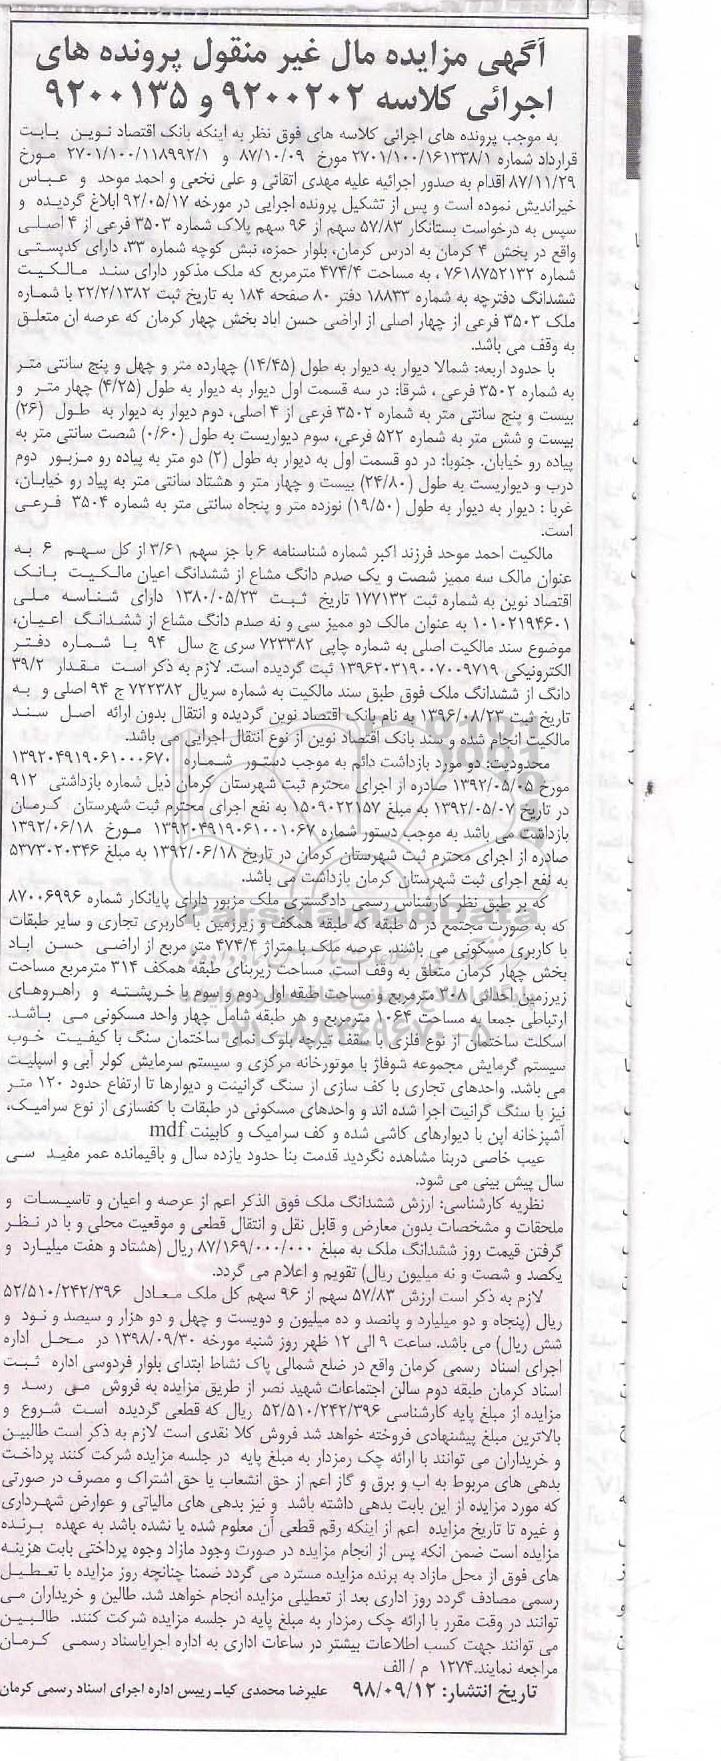 آگهی مزایده مال غیر منقول پرونده های
اجرائی کلاسه ۹۲۰۰۲۰۲ و ۹۲۰۰۱۳۵
به موجب پرونده های اجرائی کلاسه های فوق نظر به اینکه بانک اقتصاد نوین بابت
قرارداد شماره ۲۷۰۱/۱۰۰/۱۶۱۳۳۸/۱ مورخ ۸۷/۱۰/۰۹ و ۲۷۰۱/۱۰۰/۱۱۸۹۹۲/۱ مورخ
۸۷/۱۱/۲۹ اقدام به صدور اجرائیه علیه مهدی اتقائی و علی نخعی و احمد موحد و عباس
خیراندیش نموده است و پس از تشکیل پرونده اجرایی در مورخه ۹۲/۰۵/۱۷ ابلاغ گردیده و
سپس به درخواست بستانکار ۵۷/۸۳ سهم از ۹۶ سهم پلاک شماره ۳۵۰۳ فرعی از ۴ اصلی
واقع در بخش ۴ کرمان به ادرس کرمان، بلوار حمزه، نبش کوچه شماره ۳۳، دارای کدپستی
شماره ۷۶۱۸۷۵۲۱۳۲ ، به مساحت ۴۷۴/۴ مترمربع که ملک مذکور دارای سند مالکیت
ششدانگ دفترچه به شماره ۱۸۸۳۳ دفتر ۸۰ صفحه ۱۸۴ به تاریخ ثبت ۲۲/۲/۱۳۸۲ با شماره
ملک ۳۵۰۳ فرعی از چهار اصلی از اراضی حسن اباد بخش چهار کرمان که عرصه ان متعلق
به وقف می باشد.
با حدود اربعه: شمالا دیوار به دیوار به طول (۱۴/۴۵) چهارده متر و چهل و پنج سانتی متر
به شماره ۳۵۰۲ فرعی ، شرقا: در سه قسمت اول دیوار به دیوار به طول (۴/۲۵) چهار متر و
بیست و پنج سانتی متر به شماره ۳۵۰۲ فرعی از ۴ اصلی، دوم دیوار به دیوار به طول (۲۶)
بیست و شش متر به شماره ۵۲۲ فرعی، سوم دیواریست به طول (۰/۶۰) شصت سانتی متر به
پیاده رو خیابان. جنوبا: در دو قسمت اول به دیوار به طول (۲) دو متر به پیاده رو مزبور دوم
درب و دیواریست به طول (۲۴/۸۰) بیست و چهار متر و هشتاد سانتی متر به پیاد رو خیابان،
غربا : دیوار به دیوار به طول (۱۹/۵۰) نوزده متر و پنجاه سانتی متر به شماره ۳۵۰۴ فرعی
است.
مالکیت احمد موحد فرزند اکبر شماره شناسنامه ۶ با جز سهم ۳/۶۱ از کل سهم ۶ به
عنوان مالک سه ممیز شصت و یک صدم دانگ مشاع از ششدانگ اعیان مالکیت بانک
اقتصاد نوین به شماره ثبت ۱۷۷۱۳۲ تاریخ ثبت ۱۳۸۰/۰۵/۲۳ دارای شناسه ملی
۱۰۱۰۲۱۹۴۶۰۱ به عنوان مالک دو ممیز سی و نه صدم دانگ مشاع از ششدانگ اعیان،
موضوع سند مالکیت اصلی به شماره چاپی ۷۲۳۳۸۲ سری ج سال ۹۴ با شماره دفتر
الکترونیکی ۱۳۹۶۲۰۳۱۹۰۰۷۰۰۹۷۱۹ ثبت گردیده است. لازم به ذکر است مقدار ۳۹/۲
دانگ از ششدانگ ملک فوق طبق سند مالکیت به شماره سریال ۷۲۲۳۸۲ ج ۹۴ اصلی و به
تاریخ ثبت ۱۳۹۶/۰۸/۲۳ به نام بانک اقتصاد نوین گردیده و انتقال بدون ارائه اصل سند
مالکیت انجام شده و سند بانک اقتصاد نوین از نوع انتقال اجرایی می باشد.
محدودیت: دو مورد بازداشت دائم به موجب دستور شماره ۱۳۹۲۰۴۹۱۹۰۶۱۰۰۰۶۷۰
مورخ ۱۳۹۲/۰۵/۰۵ صادره از اجرای محترم ثبت شهرستان کرمان ذیل شماره بازداشتی ۹۱۲
در تاریخ ۱۳۹۲/۰۵/۰۷ به مبلغ ۱۵۰۹۰۲۲۱۵۷ به نفع اجرای محترم ثبت شهرستان کرمان
بازداشت می باشد به موجب دستور شماره ۱۳۹۲۰۴۹۱۹۰۶۱۰۰۱۰۶۷ مورخ ۱۳۹۲/۰۶/۱۸
صادره از اجرای محترم ثبت شهرستان کرمان در تاریخ ۱۳۹۲/۰۶/۱۸ به مبلغ ۵۳۷۳۰۲۰۳۴۶
به نفع اجرای ثبت شهرستان کرمان بازداشت می باشد.
که بر طبق نظر کارشناس رسمی دادگستری ملک مزبور دارای پایانکار شماره ۸۷۰۰۶۹۹۶
که به صورت مجتمع در ۵ طبقه که طبقه همکف و زیرزمین با کاربری تجاری و سایر طبقات
با کاربری مسکونی می باشند. عرصه ملک با متراژ ۴۷۴/۴ متر مربع از اراضی حسن اباد
بخش چهار کرمان متعلق به وقف است. مساحت زیربنای طبقه همکف ۳۱۴ مترمربع مساحت
زیرزمین احداثی ۳۰۸ مترمربع و مساحت طبقه اول دوم و سوم با خرپشته و راهروهای
ارتباطی جمعا به مساحت ۱۰۶۴ مترمربع و هر طبقه شامل چهار واحد مسکونی می باشد.
اسکلت ساختمان از نوع فلزی با سقف تیرچه بلوک نمای ساختمان سنگ با کیفیت خوب
سیستم گرمایش مجموعه شوفاژ با موتورخانه مرکزی و سیستم سرمایش کولر آبی و اسپلیت
می باشد. واحدهای تجاری با کف سازی از سنگ گرانیت و دیوارها تا ارتفاع حدود ۱۲۰ متر
نیز با سنگ گرانیت اجرا شده اند و واحدهای مسکونی در طبقات با کفسازی از نوع سرامیک،
آشپزخانه اپن با دیوارهای کاشی شده و کف سرامیک و کابینت mdf
عیب خاصی دربنا مشاهده نگردید قدمت بنا حدود یازده سال و باقیمانده عمر مفید سی
سال پیش بینی می شود.
نظریه کارشناسی: ارزش ششدانگ ملک فوق الذکر اعم از عرصه و اعیان و تاسیسات و
ملحقات و مشخصات بدون معارض و قابل نقل و انتقال قطعی و موقعیت محلی و با در نظر
گرفتن قیمت روز ششدانگ ملک به مبلغ ۸۷/۱۶۹/۰۰۰/۰۰۰ ریال (هشتاد و هفت میلیارد و
یکصد و شصت و نه میلیون ریال) تقویم و اعلام می گردد.
لازم به ذکر است ارزش ۵۷/۸۳ سهم از ۹۶ سهم کل ملک معادل ۵۲/۵۱۰/۲۴۲/۳۹۶
ریال (پنجاه و دو میلیارد و پانصد و ده میلیون و دویست و چهل و دو هزار و سیصد و نود و
شش ریال) می باشد. ساعت ۹ الی ۱۲ ظهر روز شنبه مورخه ۱۳۹۸/۰۹/۳۰ در محل اداره
اجرای اسناد رسمی کرمان واقع در ضلع شمالی پاک نشاط ابتدای بلوار فردوسی اداره ثبت
اسناد کرمان طبقه دوم سالن اجتماعات شهید نصر از طریق مزایده به فروش می رسد و
مزایده از مبلغ پایه کارشناسی ۵۲/۵۱۰/۲۴۲/۳۹۶ ریال که قطعی گردیده است شروع و
بالاترین مبلغ پیشنهادی فروخته خواهد شد فروش کلا نقدی است لازم به ذکر است طالبین
و خریداران می توانند با ارائه چک رمزدار به مبلغ پایه در جلسه مزایده شرکت کنند پرداخت
بدهی های مربوط به اب و برق و گاز اعم از حق انشعاب یا حق اشتراک و مصرف در صورتی
که مورد مزایده از این بابت بدهی داشته باشد و نیز بدهی های مالیاتی و عوارض شهرداری
و غیره تا تاریخ مزایده اعم از اینکه رقم قطعی آن معلوم شده یا نشده باشد به عهده برنده
مزایده است ضمن انکه پس از انجام مزایده در صورت وجود مازاد وجوه پرداختی بابت هزینه
های فوق از محل مازاد به برنده مزایده مسترد می گردد ضمنا چنانچه روز مزایده با تعطیل
رسمی مصادف گردد روز اداری بعد از تعطیلی مزایده انجام خواهد شد. طالبن و خریداران می
توانند در وقت مقرر با ارائه چک رمزدار به مبلغ پایه در جلسه مزایده شرکت کنند. طالبین
می توانند جهت کسب اطلاعات بیشتر در ساعات اداری به اداره اجرایاسناد رسمی کرمان
مراجعه نمایند.۱۲۷۴ م / الف
تاریخ انتشار: ۹۸/۰۹/۱۲ علیرضا محمدی کیا- رییس اداره اجرای اسناد رسمی کرمان
ParsNamadData